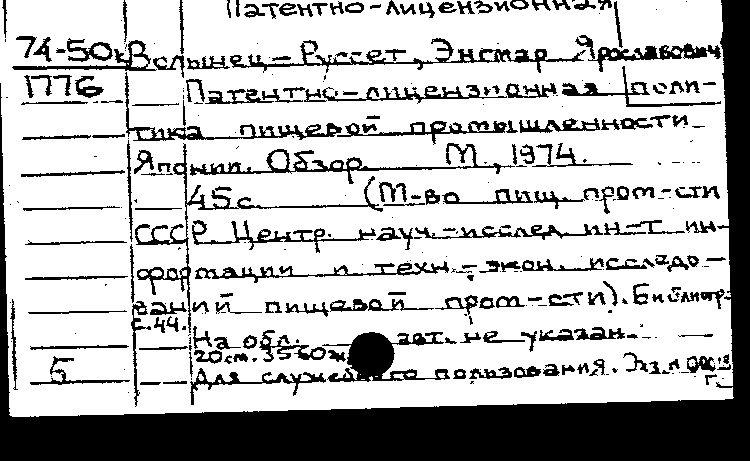 Патентно-лицензионная
74-50к Волынец-Руссет, Энгмар Ярославович
1776 Патентно-лицензионная поли-
тика пищевой промышленности
Японии. Обзор. М., 1974.
45 с. (М-во пищ. пром-сти
СССР. Центр. науч.-исслед. ин-т ин-
формации и техн.-экон. исследо-
ваний пищевой пром-сти). Библиогр.
с. 44.
На обл. авт. не указан.
20 см. 3560
5 Для служебного пользования. Экз. №